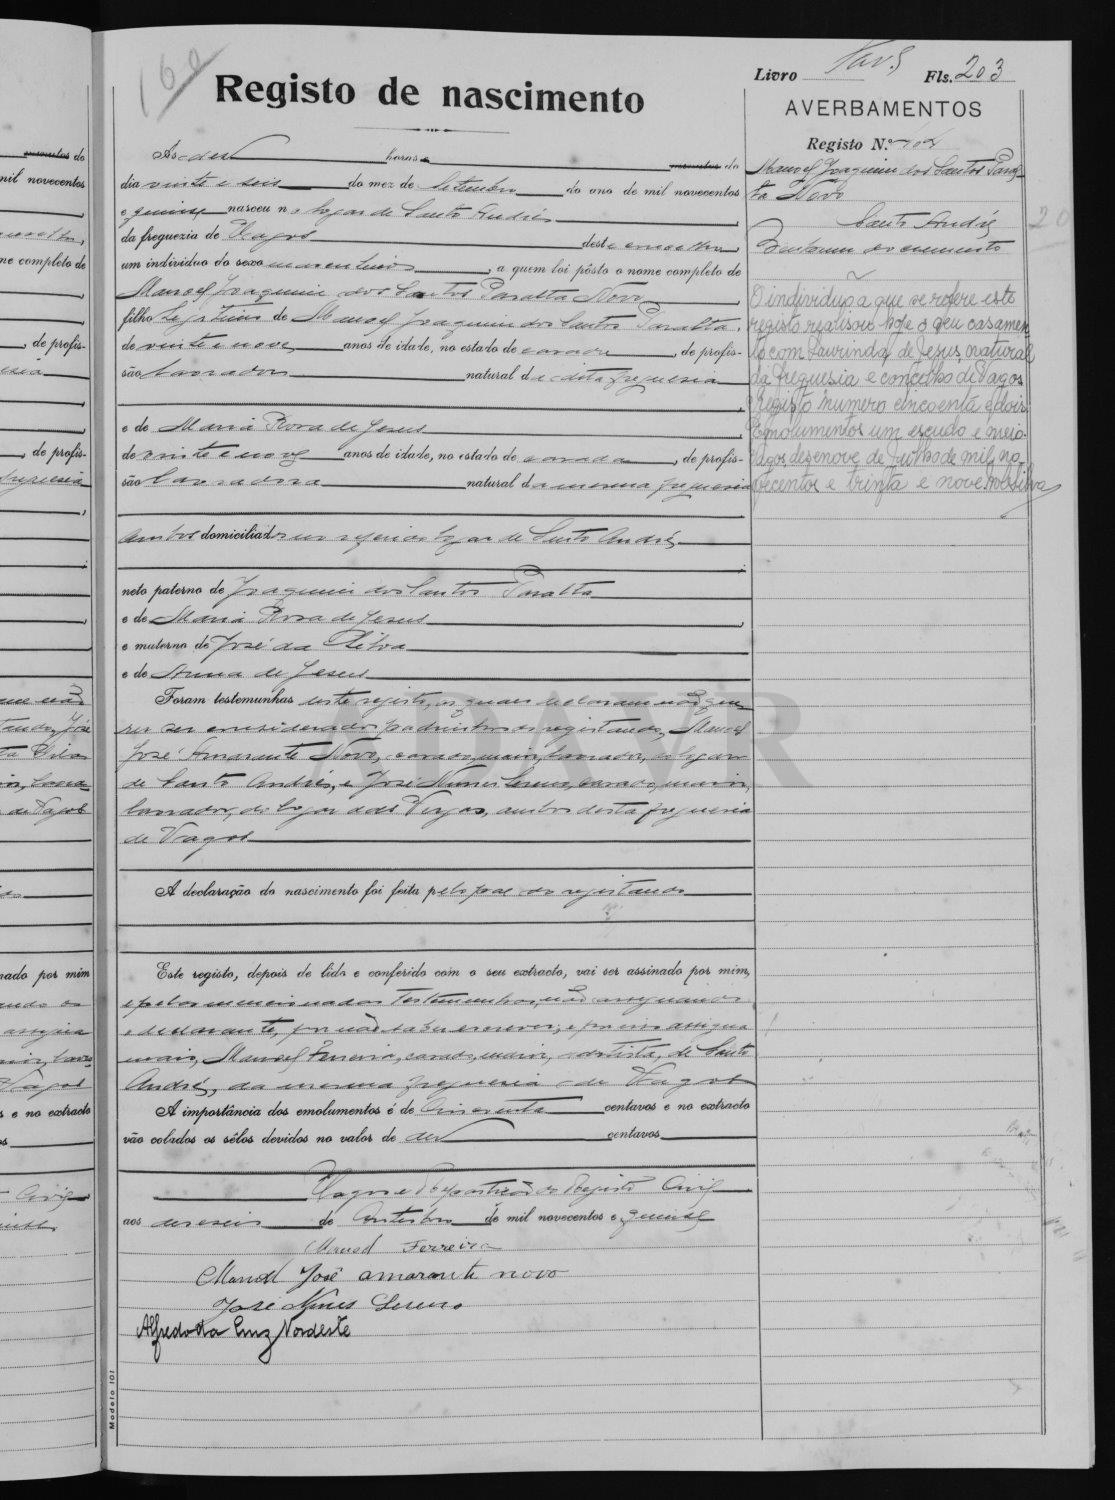 160
Livro Fls. 203
Registo de nascimento
AVERBAMENTOS
Registo N.º
Manoel Joaquim dos Santos Paral-
ta Novo
Santo André
20
O individuo a que se refere este
registo realisou hoje o seu casamen
to com Laurinda de Jesus, natural
da freguesia e concelho de Vagos
Registo numero cincoenta e dois.
Emolumentos um escudo e meio.
Vagos, desenove de Julho de mil no-
vecentos e trinta e nove.
Ás dez horas e minutos do
dia vinte e seis do mez de Setembro do ano de mil novecentos
e quinze nasceu n o logar de Santo André
da freguezia de Vagos deste concelho
um individuo do sexo masculino, a quem foi pôsto o nome completo de
Manoel Joaquim dos Santos Paralta Novo,
filho legitimo de Manoel Joaquim dos Santos Paralta,
de vinte e nove anos de idade, no estado de casado, de profis-
são lavrador natural d a dita freguesia
e de Maria Rosa de Jesus,
de vinte e nove anos de idade, no estado de casada, de profis-
são lavradora natural d a mesma freguesia
ambos domiciliados no referido logar de Santo André
neto paterno de Joaquim dos Santos Paralta
e de Maria Rosa de Jesus,
e materno de José da Silva
e de Anna de Jesus
Foram testemunhas deste registo, os quaes declaram não que-
rer ser considerados padrinhos do registando, Manoel
José Amarante Novo, casado, maior, lavrador, do logar
de Santo André, e José Nunes Sereno, casado, maior,
lavrador, do logar das Vergas, ambos desta freguesia
de Vagos
A declaração do nascimento foi feita pelo pae do registando
Este registo, depois de lido e conferido com o seu extracto, vai ser assinado por mim,
e pelas mencionadas testemunhas, não assignando
o declarante, por não saber escrever, e por isso assigna
mais, Manoel Ferreira, casado, maior, de Santo
André, da mesma freguesia de Vagos
A importância dos emolumentos é de cincoenta centavos e no extracto
vão colados os sêlos devidos no valor de dez centavos
Vagos e Repartição do Registo Civil
aos deseseis de Outubro de mil novecentos e quinze
Manoel Ferreira
Manoel José amarante novo
José Nunes Sereno
Alfredo da Cruz Nordeste
Modelo 101
ADAVR